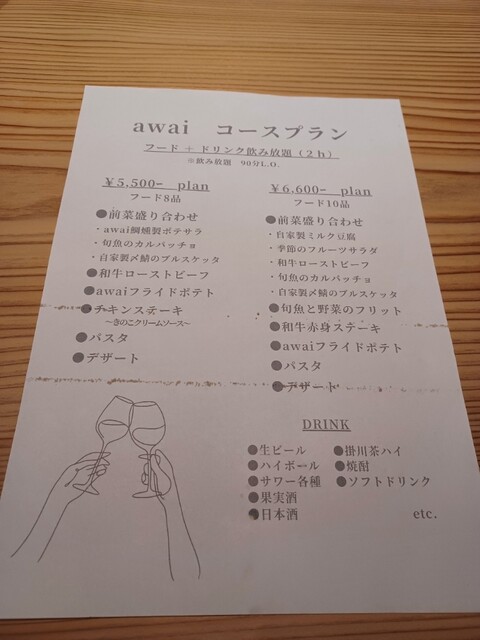 awai コースプラン
フード + ドリンク飲み放題（2h）
※飲み放題 90分L.O.
￥5,500- plan
フード8品
●前菜盛り合わせ
・awai鯛燻製ポテサラ
・旬魚のカルパッチョ
・自家製〆鯖のブルスケッタ
●和牛ローストビーフ
●awaiフライドポテト
●チキンステーキ
～きのこクリームソース～
●パスタ
●デザート
￥6,600- plan
フード10品
●前菜盛り合わせ
・自家製ミルク豆腐
・季節のフルーツサラダ
・和牛ローストビーフ
・旬魚のカルパッチョ
・自家製〆鯖のブルスケッタ
●旬魚と野菜のフリット
●和牛赤身ステーキ
●awaiフライドポテト
●パスタ
●デザート
DRINK
●生ビール ●掛川茶ハイ
●ハイボール ●焼酎
●サワー各種 ●ソフトドリンク
●果実酒
●日本酒 etc.